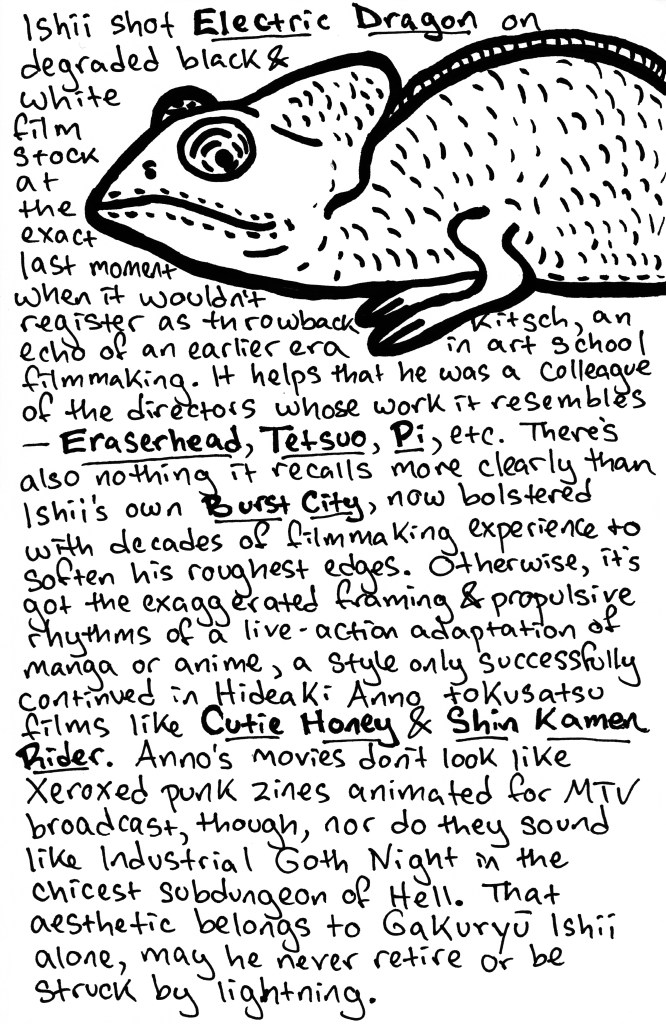 Ishii shot Electric Dragon on
degraded black &
white
film
stock
at
the
exact
last moment
when it wouldn't
register as throwback kitsch, an
echo of an earlier era in art school
filmmaking. It helps that he was a colleague
of the directors whose work it resembles
— Eraserhead, Tetsuo, Pi, etc. There's
also nothing it recalls more clearly than
Ishii's own Burst City, now bolstered
with decades of filmmaking experience to
soften his roughest edges. Otherwise, it's
got the exaggerated framing & propulsive
rhythms of a live-action adaptation of
manga or anime, a style only successfully
continued in Hideaki Anno tokusatsu
films like Cutie Honey & Shin Kamen
Rider. Anno's movies don't look like
Xeroxed punk zines animated for MTV
broadcast, though, nor do they sound
like Industrial Goth Night in the
chicest subdungeon of Hell. That
aesthetic belongs to Gakuryū Ishii
alone, may he never retire or be
struck by lightning.